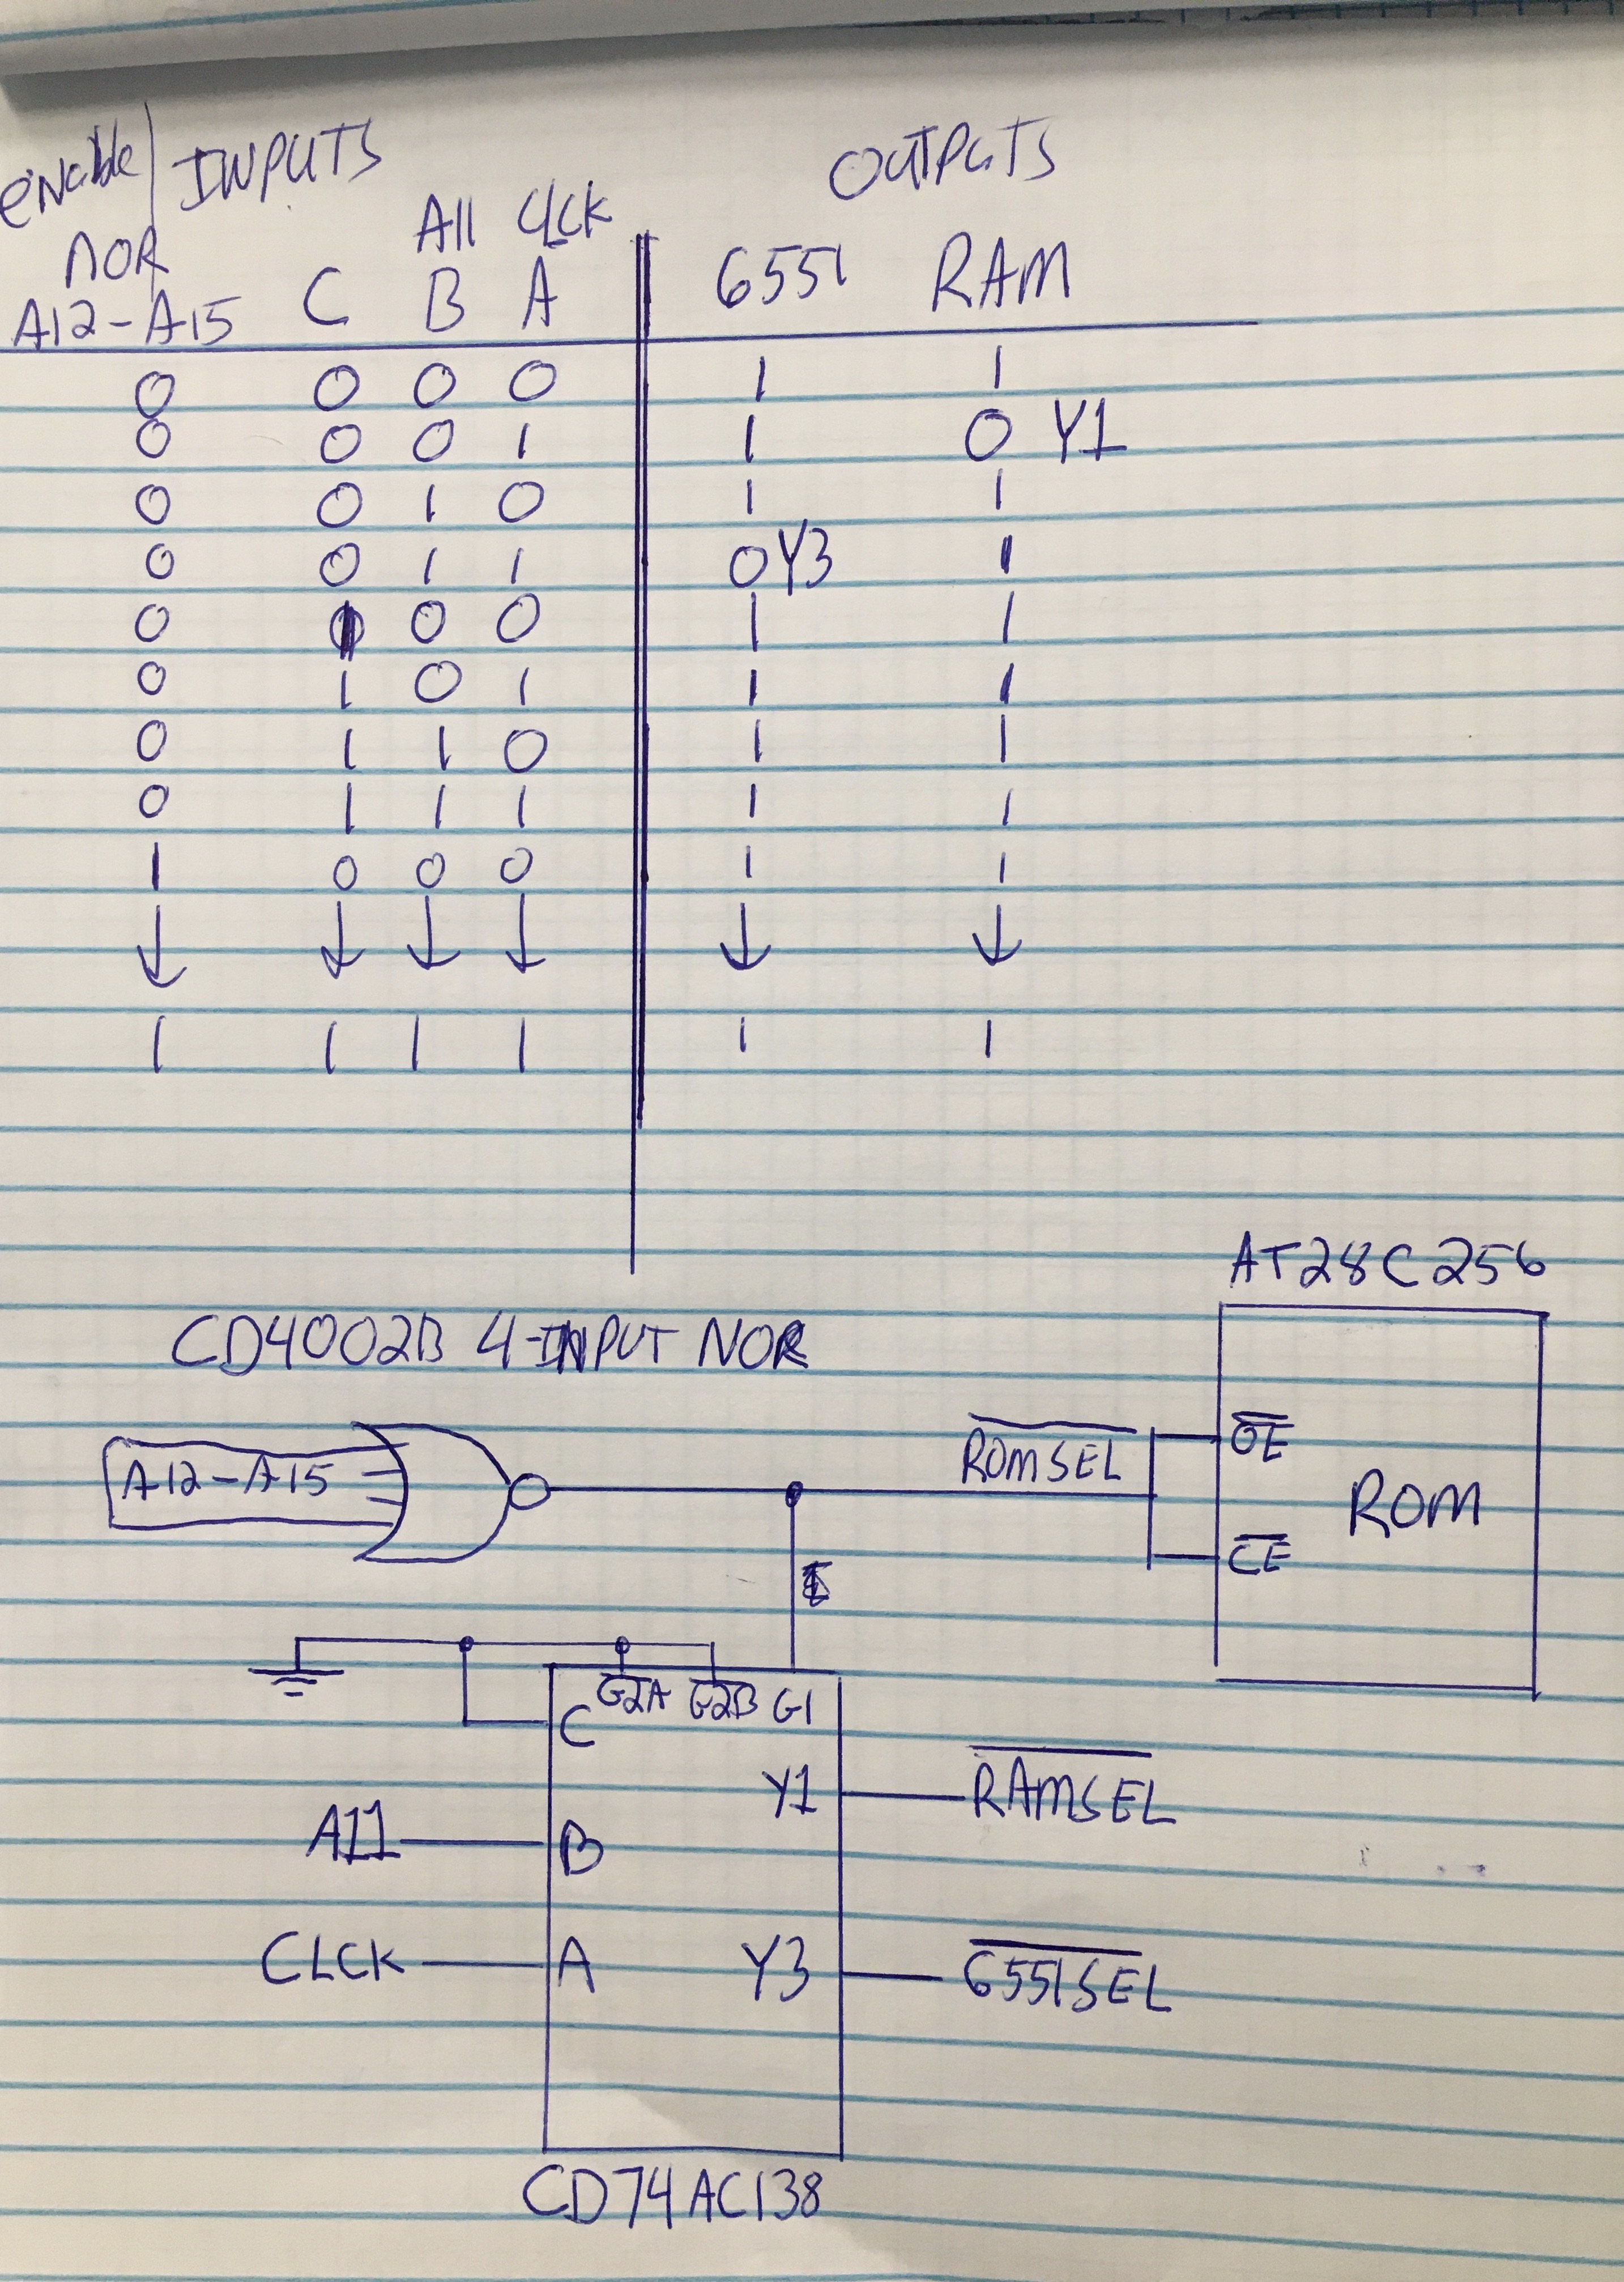 enable INPUTS OUTPUTS
NOR A11 CLCK
A12-A15 C B A 6551 RAM
0 0 0 0 1 1
0 0 0 1 1 0 Y1
0 0 1 0 1 1
0 0 1 1 0 Y3 1
0 1 0 0 1 1
0 1 0 1 1 1
0 1 1 0 1 1
0 1 1 1 1 1
1 0 0 0 1 1
↓ ↓ ↓ ↓ ↓ ↓
1 1 1 1 1 1
AT28C256
CD4002B 4-INPUT NOR
A12-A15 ROMSEL OE
ROM
CE
C G2A G2B G1
Y1 RAMSEL
A11 B
CLCK A Y3 6551SEL
CD74AC138